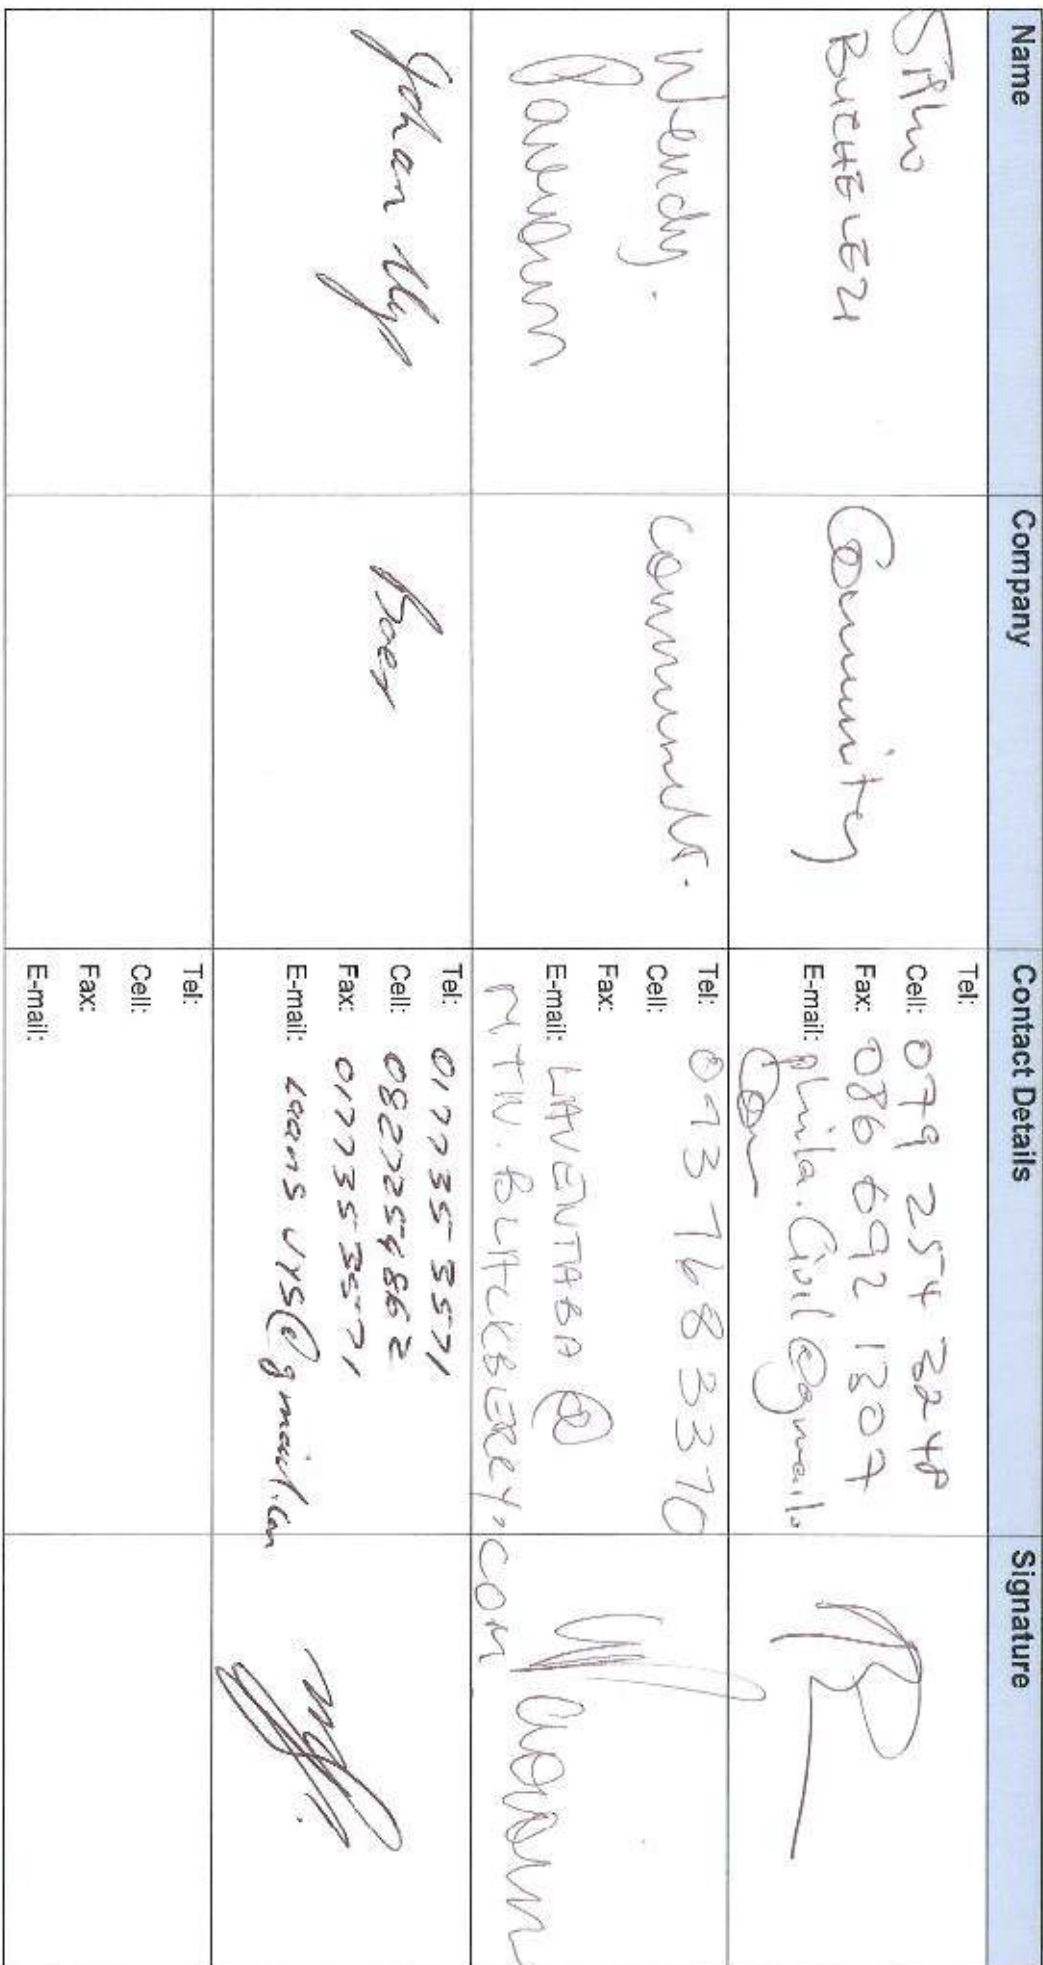 Name Company Contact Details Signature
Sipho
BUTHELEZI
Community
Tel:
Cell: 079 254 3248
Fax: 086 692 1307
E-mail: phila.Civil@gmail.
Com
Wendy.
Community.
Tel: 073 768 3370
Cell:
Fax:
E-mail: LAVENTABA @
MTN.BLACKBERRY.COM
Johan Uys
Boer
Tel: 017735 3571
Cell: 0827254862
Fax: 017735 3571
E-mail: Laans uys@gmail.com
Tel:
Cell:
Fax:
E-mail: